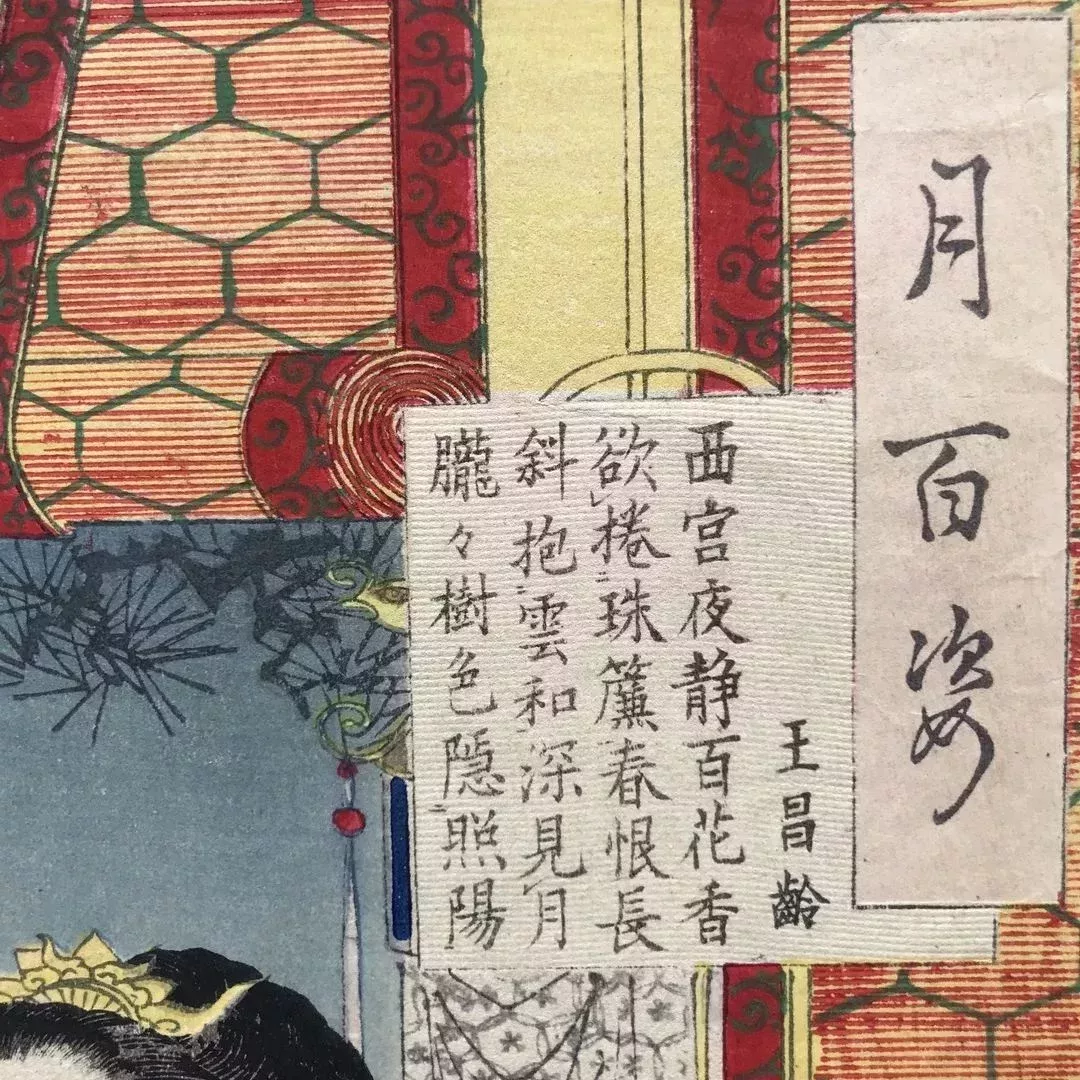 月百姿
王昌齡
西宮夜静百花香
欲捲珠簾春恨長
斜抱雲和深見月
朧々樹色隠照陽